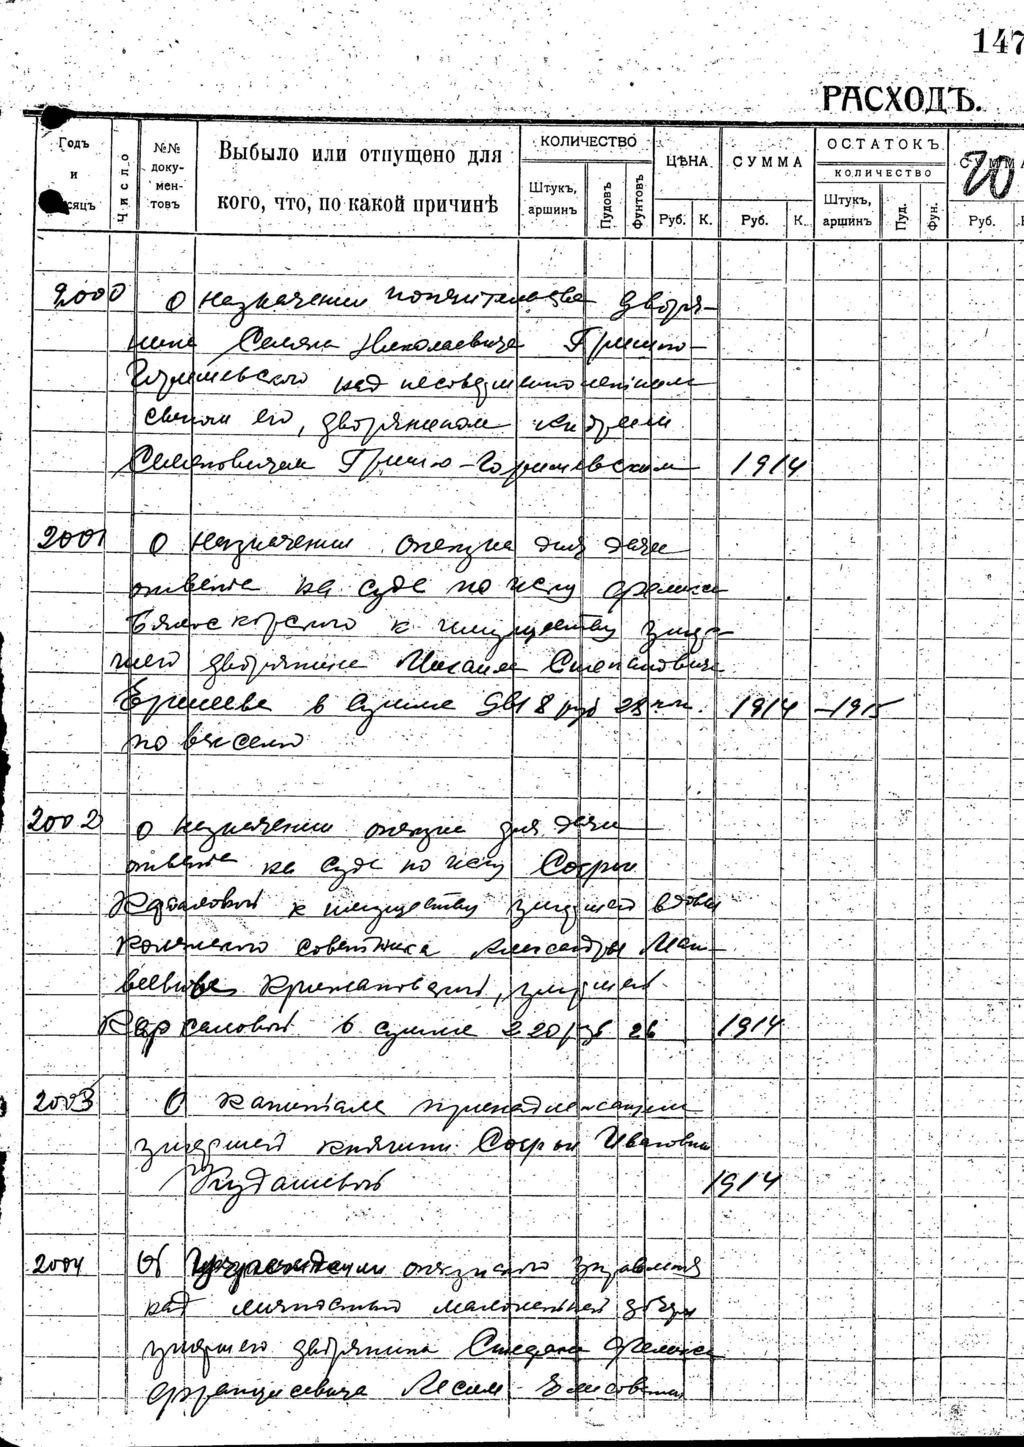 147
РАСХОДЪ.
Годъ и
сяцъ
Число
№№ доку-мен-товъ
Выбыло или отпущено для
кого, что, по какой причинѣ
КОЛИЧЕСТВО
Штукъ, аршинъ
Пудовъ
Фунтовъ
ЦѢНА
Руб. К.
СУММА
Руб. К.
ОСТАТОКЪ
КОЛИЧЕСТВО
Штукъ, аршинъ
Пуд.
Фун.
20
СУММА
Руб.
2000 О назначении попечительства дворя-
нина Семена Николаевича Гришко-
над несовершеннолетним
сыном его, дворянином Андреем
Семеновичем Гришко- 1914
2001 О назначении опекуна для дачи
ответа на суде по иску Феликса
к имуществу умер-
шего дворянина Михаила Степановича
в сумме 918 руб 28 коп. 1914 – 1915
по векселю
2002 О назначении опекуна для дачи
ответа на суде по иску Софьи
к имуществу умершей вдовы
коллежского советника Александры Мат-
веевны Крижановской, умершей
в сумме 220 руб 26 1914
2003 О капитале принадлежащем
умершей княгини Софьи Ивановны
Кудашевой 1914
2004 Об учреждении опекунского управления
над личностью малолетней дочери
умершего дворянина Стефана Феликса
Францисевича